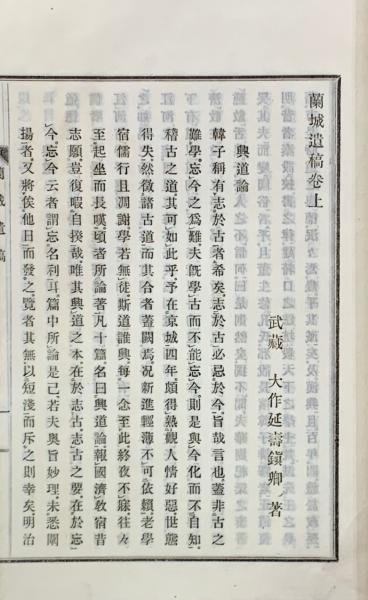 蘭城遺稿卷上
武藏 大作延壽鎭卿 著
興道論
韓子稱有志於古者希矣志於古必忌於今旨哉言也蓋非古之
難學忘今之爲難夫既學古而不能忘今則是與今化而不自知
稽古之道其可如此乎予在京城四年頗得熟觀人情好惡世態
得失然徵諸古道而其合者蓋闕焉況新進輕薄不可依賴老學
宿儒行且凋謝學若無徒斯道誰興每一念至此終夜不寐往々
至起坐而長嘆頃者所論著凡十篇名曰興道論報國濟救宿昔
志願豈復暇自揆哉唯其興道之本在於志古志古之要在於忘
今忘今云者謂忘名利耳篇中所論是已若夫奧旨妙理未悉闡
揚者又將俟他日而發之覽者其無以短淺而斥之則幸矣明治
蘭城遺稿